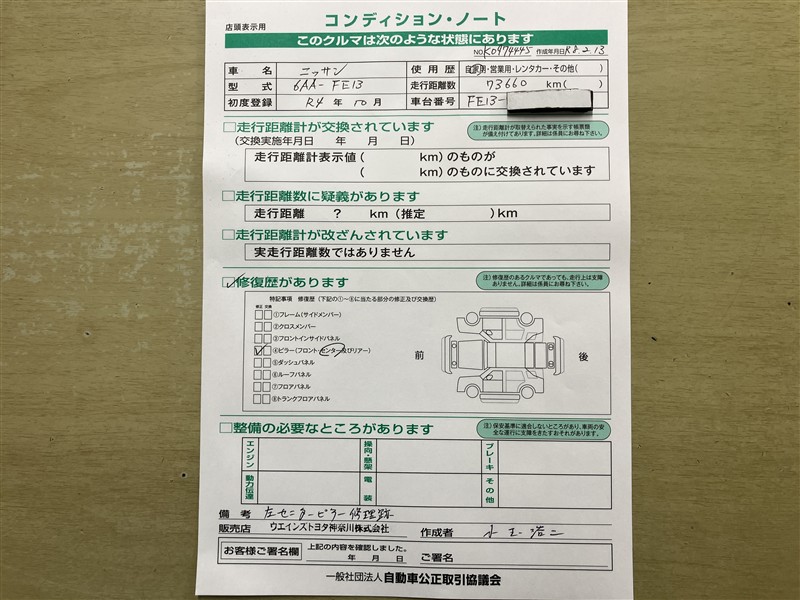 店頭表示用
コンディション・ノート
このクルマは次のような状態にあります
NO K0974445 作成年月日 R8.2.13
車名 ニッサン 使用歴 自家用・営業用・レンタカー・その他( )
型式 6AA-FE13 走行距離数 73660 km( )
初度登録 R4 年 10 月 車台番号 FE13-
□走行距離計が交換されています
注)走行距離計が取替えられた事実を示す帳票類が備え付けてあります。詳細は係員にお尋ね下さい。
(交換実施年月日 年 月 日)
走行距離計表示値( km)のものが
( km)のものに交換されています
□走行距離数に疑義があります
走行距離 ? km(推定 )km
□走行距離計が改ざんされています
実走行距離数ではありません
☑修復歴があります
注)修復歴のあるクルマであっても、走行上は支障ありません。詳細は係員にお尋ね下さい。
特記事項 修復歴(下記の①〜⑧に当たる部分の修正及び交換歴)
修正 交換
□□①フレーム(サイドメンバー)
□□②クロスメンバー
□□③フロントインサイドパネル
☑□④ピラー(フロント・センター及びリアー)
□□⑤ダッシュパネル
□□⑥ルーフパネル
□□⑦フロアパネル
□□⑧トランクフロアパネル
前 後
□整備の必要なところがあります
注)保安基準に適合しないところがあり、車両の安全な運行に支障をきたすおそれがあります。
エンジン 操向・懸架 ブレーキ
動力伝達 電装 その他
備考 左センターピラー修理跡
販売店 ウエインズトヨタ神奈川株式会社 作成者
お客様ご署名欄 上記の内容を確認しました。
年 月 日 ご署名
一般社団法人 自動車公正取引協議会